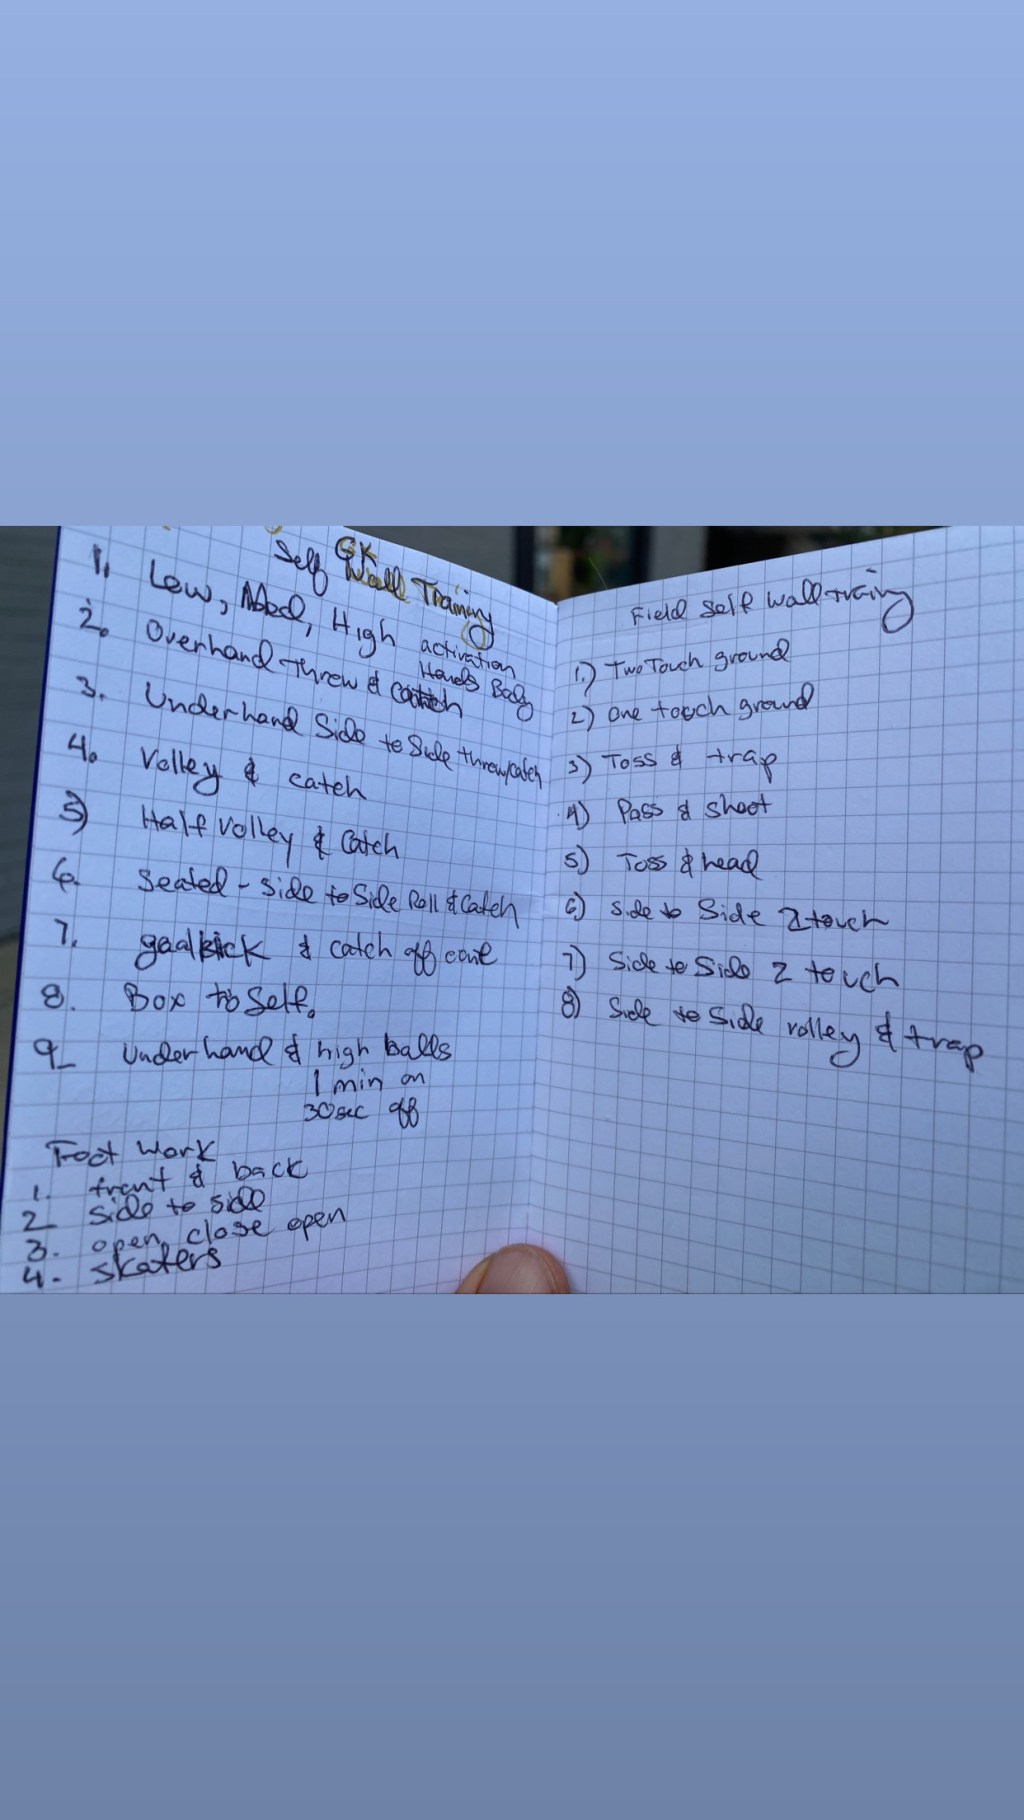 Self GK Wall Training
1. Low, Med, High activation
Hands Body
2. Overhand throw & catch
3. Underhand Side to Side throw/catch
4. Volley & catch
5) Half Volley & Catch
6. Seated - Side to Side Roll & Catch
7. goalkick & catch off cone
8. Box to Self.
9 Underhand & high balls
1 min on
30sec off
Foot Work
1. front & back
2 side to side
3. open, close open
4. skaters
Field Self wall training
1.) Two Touch ground
2) One touch ground
3) Toss & trap
4) Pass & shoot
5) Toss & head
6) Side to Side 2 touch
7) Side to Side 2 touch
8) Side to Side volley & trap